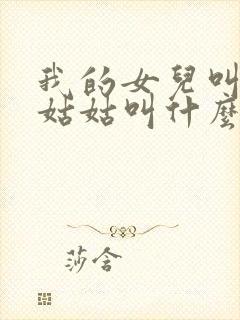 我的女兒叫
姑姑叫什麼
莎含